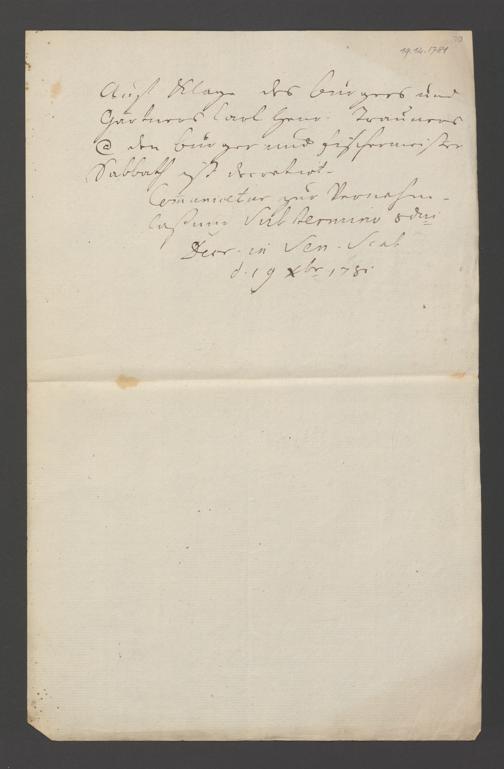 19.12.1781
Auf Klage des bürgers und
Gärtners Carl Henr. Trauners
@ den bürger und fischermeister
Sabbath ist decretirt.
Comunicetur zur Vernehm-
lassung Sub termino 8 dni
Decr. in Sen. Scab
d. 19 Xbr 1781